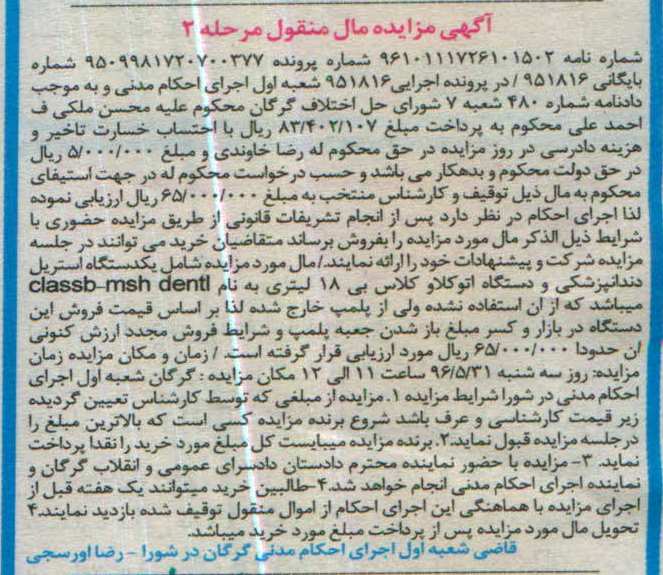 آگهی مزایده مال منقول مرحله ۲
شماره نامه ۹۶۱۰۱۱۱۷۲۶۱۰۱۵۰۲ شماره پرونده ۹۵۰۹۹۸۱۷۲۰۷۰۰۳۷۷ شماره
بایگانی ۹۵۱۸۱۶ / در پرونده اجرایی۹۵۱۸۱۶ شعبه اول اجرای احکام مدنی و به موجب
دادنامه شماره ۴۸۰ شعبه ۷ شورای حل اختلاف گرگان محکوم علیه محسن ملکی ف
احمد علی محکوم به پرداخت مبلغ ۸۳/۴۰۲/۱۰۷ ریال با احتساب خسارت تاخیر و
هزینه دادرسی در روز مزایده در حق محکوم له رضا خاوندی و مبلغ ۵/۰۰۰/۰۰۰ ریال
در حق دولت محکوم و بدهکار می باشد و حسب درخواست محکوم له در جهت استیفای
محکوم به مال ذیل توقیف و کارشناس منتخب به مبلغ ۶۵/۰۰۰/۰۰۰ ریال ارزیابی نموده
لذا اجرای احکام در نظر دارد پس از انجام تشریفات قانونی از طریق مزایده حضوری با
شرایط ذیل الذکر مال مورد مزایده را بفروش برساند متقاضیان خرید می توانند در جلسه
مزایده شرکت و پیشنهادات خود را ارائه نمایند./مال مورد مزایده شامل یکدستگاه استریل
دندانپزشکی و دستگاه اتوکلاو کلاس بی ۱۸ لیتری به نام classb-msh dentl
میباشد که از ان استفاده نشده ولی از پلمپ خارج شده لذا بر اساس قیمت فروش این
دستگاه در بازار و کسر مبلغ باز شدن جعبه پلمپ و شرایط فروش مجدد ارزش کنونی
ان حدودا ۶۵/۰۰۰/۰۰۰ ریال مورد ارزیابی قرار گرفته است. / زمان و مکان مزایده زمان
مزایده: روز سه شنبه ۹۶/۵/۳۱ ساعت ۱۱ الی ۱۲ مکان مزایده : گرگان شعبه اول اجرای
احکام مدنی در شورا شرایط مزایده ۱. مزایده از مبلغی که توسط کارشناس تعیین گردیده
زیر قیمت کارشناسی و عرف باشد شروع برنده مزایده کسی است که بالاترین مبلغ را
در جلسه مزایده قبول نماید.۲. برنده مزایده میبایست کل مبلغ مورد خرید را نقدا پرداخت
نماید. ۳- مزایده با حضور نماینده محترم دادستان دادسرای عمومی و انقلاب گرگان و
نماینده اجرای احکام مدنی انجام خواهد شد.۴-طالبین خرید میتوانند یک هفته قبل از
اجرای مزایده با هماهنگی این اجرای احکام از اموال منقول توقیف شده بازدید نمایند.۴
تحویل مال مورد مزایده پس از پرداخت مبلغ مورد خرید میباشد.
قاضی شعبه اول اجرای احکام مدنی گرگان در شورا - رضا اورسجی